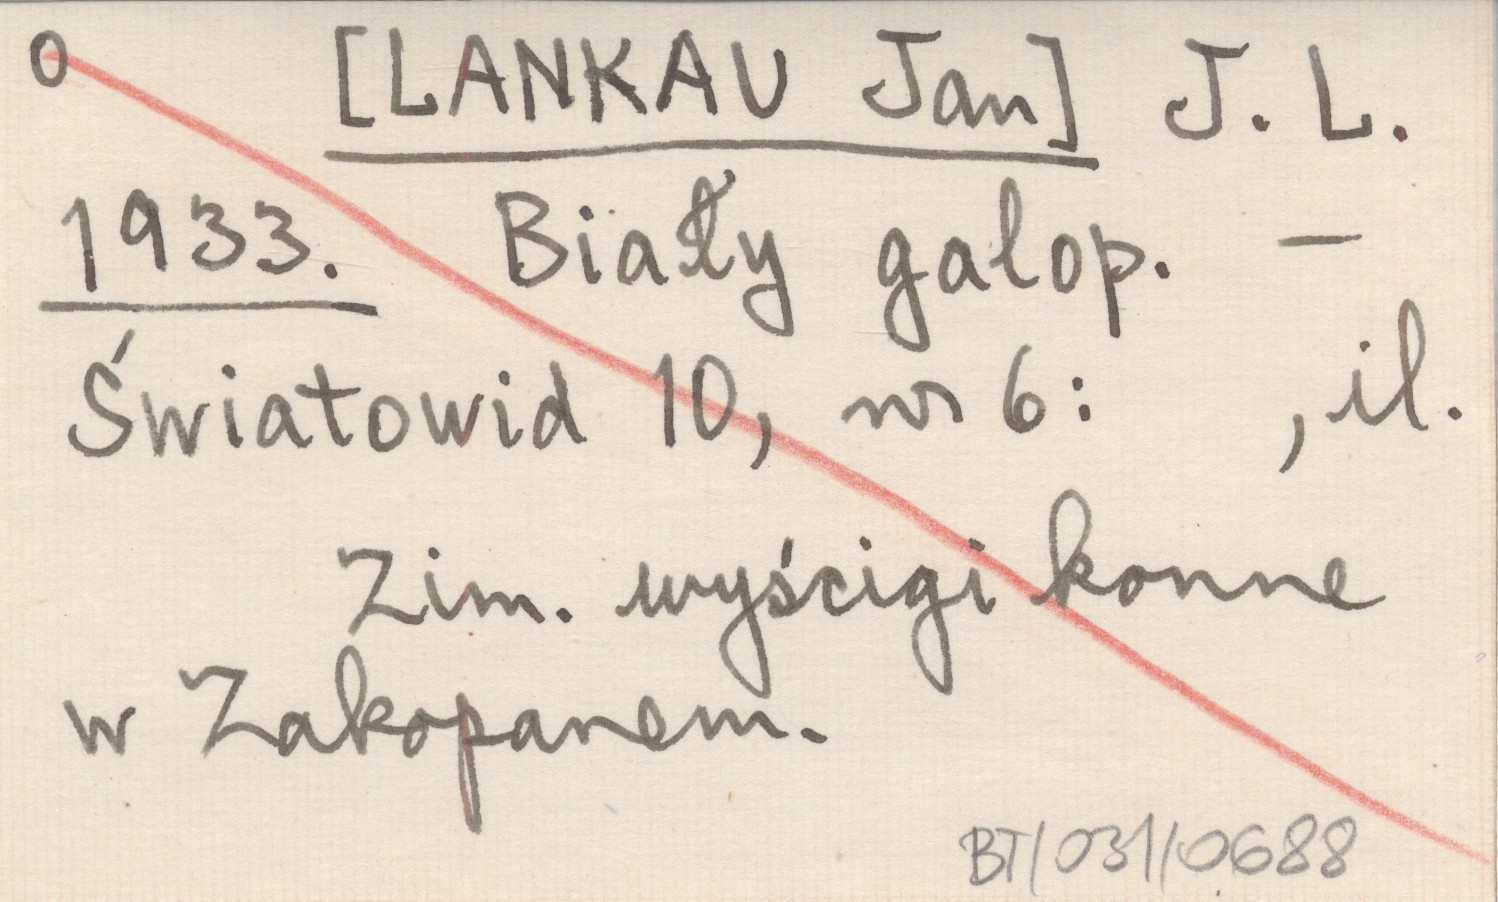 0 [LANKAU Jan] J. L.
1933. Biały galop. —
Światowid 10, nr 6: , il.
Zim. wyścigi konne
w Zakopanem.
BT/031/0688